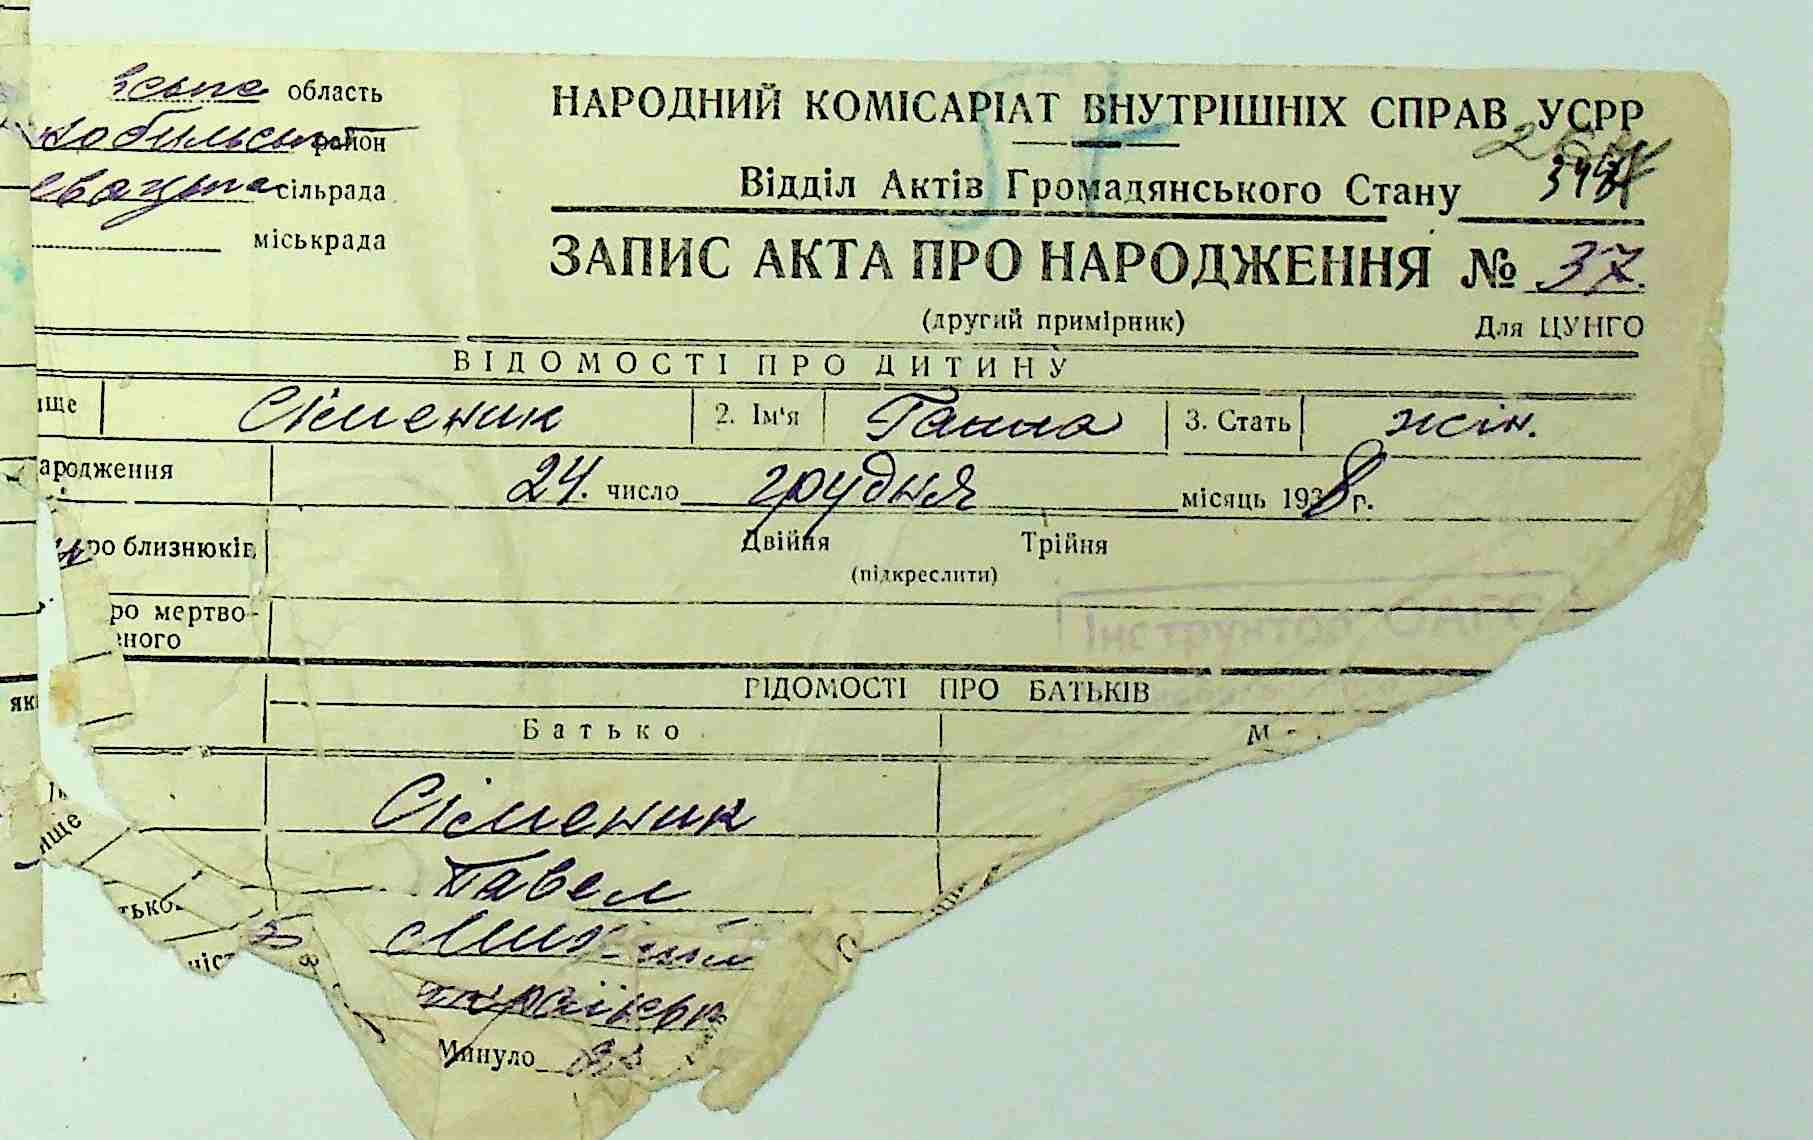 область
район
сільрада
міськрада
НАРОДНИЙ КОМІСАРІАТ ВНУТРІШНІХ СПРАВ УСРР
Відділ Актів Громадянського Стану
ЗАПИС АКТА ПРО НАРОДЖЕННЯ № 37.
(другий примірник) Для ЦУНГО
ВІДОМОСТІ ПРО ДИТИНУ
ище Сіменик 2. Ім'я Ганна 3. Стать жін.
ародження 24. число грудня місяць 1938 г.
ро близнюків Двійня Трійня
(підкреслити)
ро мертво-
еного
Інструктор
ВІДОМОСТІ ПРО БАТЬКІВ
як
Батько М
Сіменик
ище
Павел
тько
ніст
Минуло